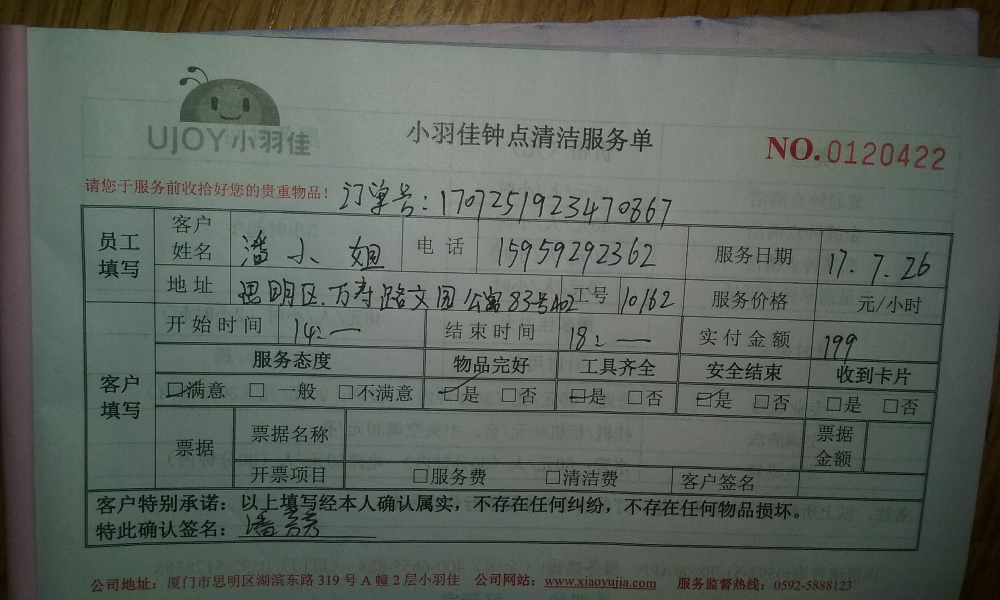 UJOY小羽佳
小羽佳钟点清洁服务单
NO.0120422
请您于服务前收拾好您的贵重物品！ 订单号：1707251923470867
员工填写 客户姓名 潘小姐 电话 15959292362 服务日期 17.7.26
地址 思明区.万寿路文园公寓83号402 工号 10162 服务价格 元/小时
开始时间 14:— 结束时间 18:— 实付金额 199
客户填写 服务态度 物品完好 工具齐全 安全结束 收到卡片
□满意 □一般 □不满意 □是 □否 □是 □否 □是 □否 □是 □否
票据 票据名称 票据金额
开票项目 □服务费 □清洁费 客户签名
客户特别承诺：以上填写经本人确认属实，不存在任何纠纷，不存在任何物品损坏。
特此确认签名：潘
公司地址：厦门市思明区湖滨东路319号A幢2层小羽佳 公司网站：www.xiaoyujia.com 服务监督热线：0592-5888123